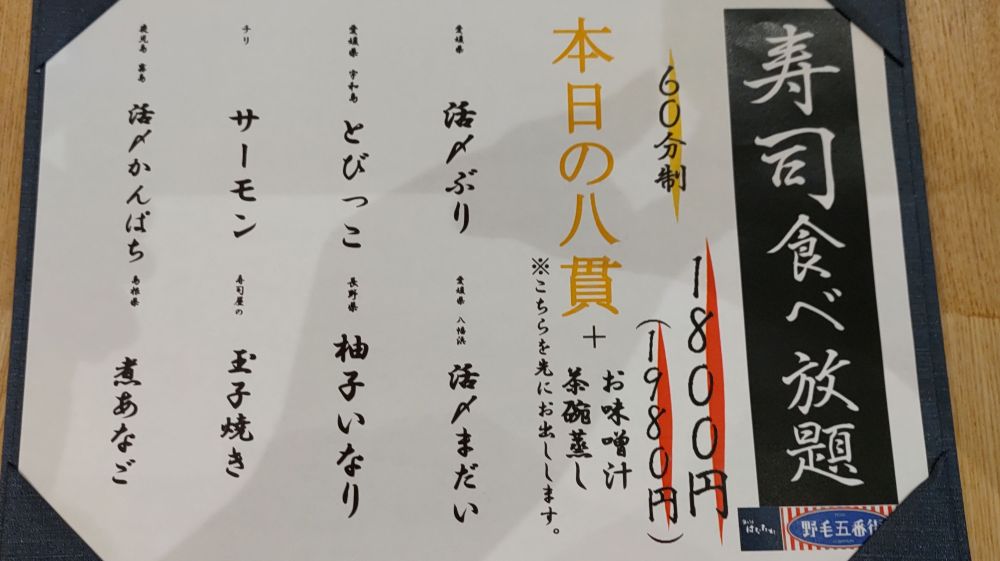 寿司食べ放題
1800円
(1980円)
60分制
本日の八貫
+
お味噌汁
茶碗蒸し
※こちらを先にお出しします。
愛媛県
活〆ぶり
愛媛県 八幡浜
活〆まだい
愛媛県 宇和島
とびっこ
長野県
柚子いなり
チリ
サーモン
寿司屋の
玉子焼き
鹿児島
活〆かんぱち
島根県
煮あなご
野毛五番街